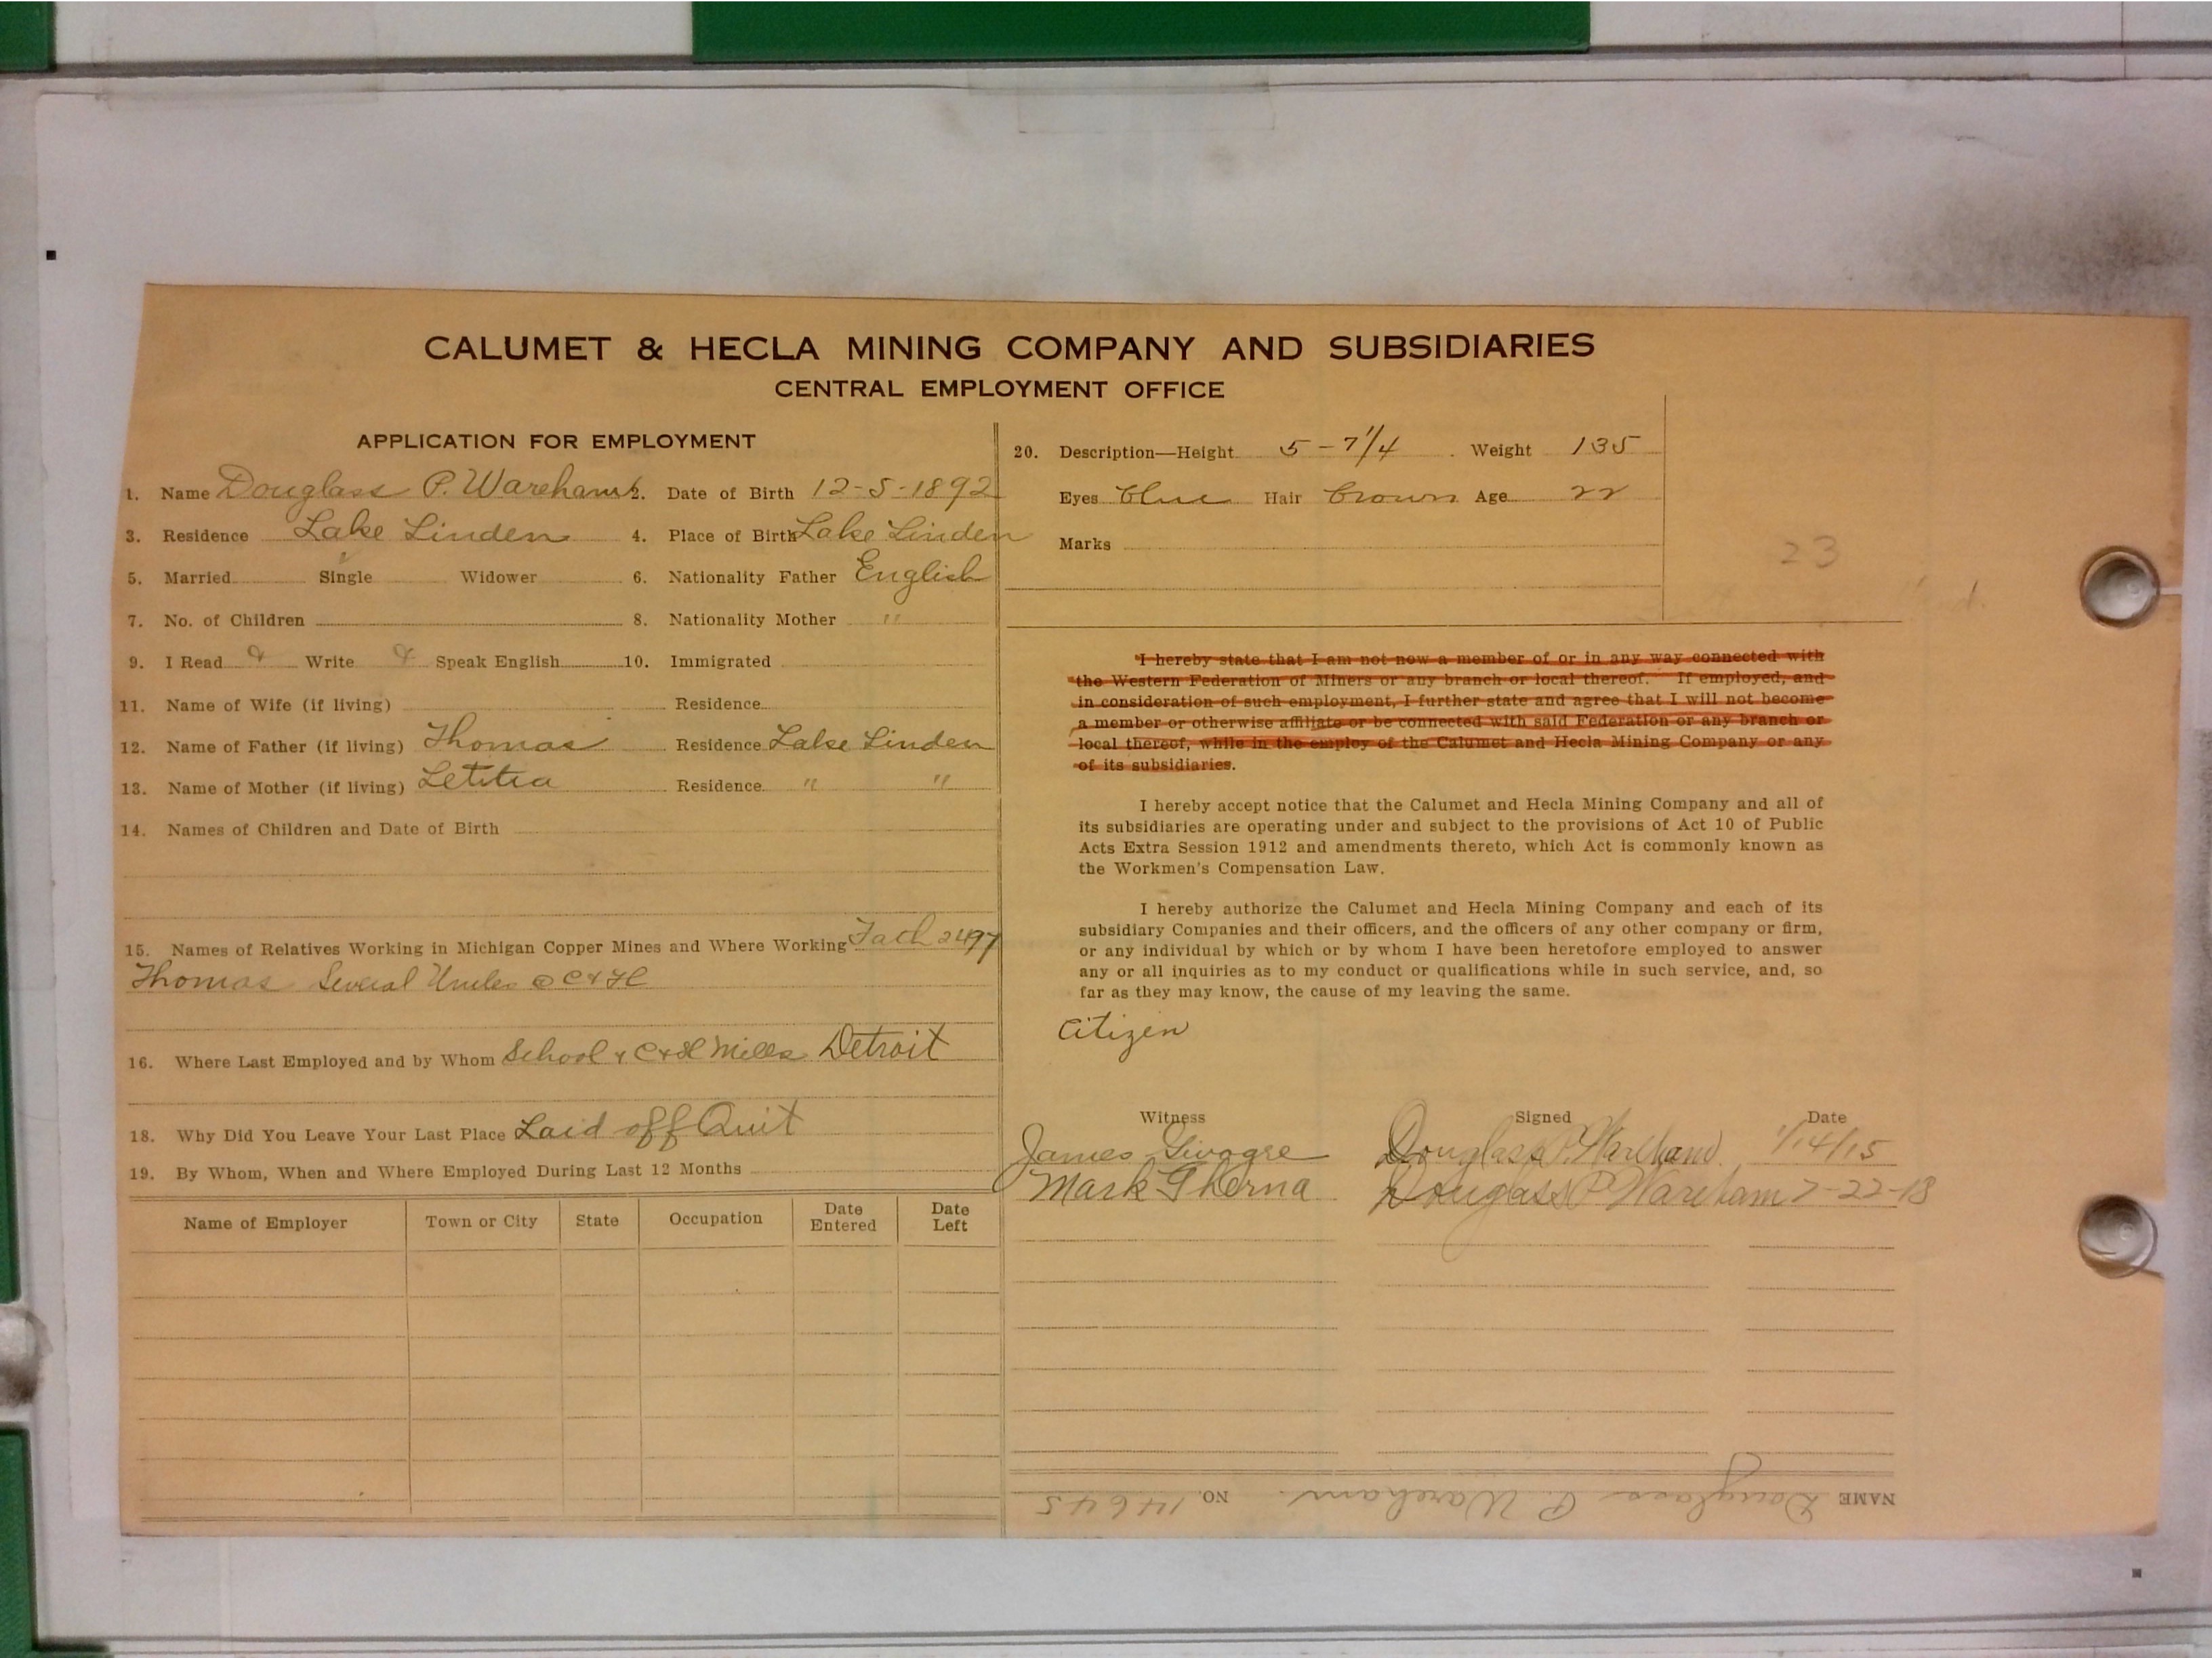 CALUMET & HECLA MINING COMPANY AND SUBSIDIARIES
CENTRAL EMPLOYMENT OFFICE
APPLICATION FOR EMPLOYMENT
1. Name Douglass P. Wareham 2. Date of Birth 12-5-1892
3. Residence Lake Linden 4. Place of Birth Lake Linden
5. Married Single Widower 6. Nationality Father English
7. No. of Children 8. Nationality Mother "
9. I Read & Write & Speak English 10. Immigrated
11. Name of Wife (if living) Residence
12. Name of Father (if living) Thomas Residence Lake Linden
13. Name of Mother (if living) Letitia Residence " "
14. Names of Children and Date of Birth
15. Names of Relatives Working in Michigan Copper Mines and Where Working 2497
Thomas Several Uncles @ C & H
16. Where Last Employed and by Whom School & C & H Mills Detroit
18. Why Did You Leave Your Last Place Laid off Quit
19. By Whom, When and Where Employed During Last 12 Months
Name of Employer Town or City State Occupation Date Entered Date Left
20. Description—Height 5-7 1/4" Weight 135
Eyes blue Hair brown Age 22
Marks
23
"I hereby state that I am not now a member of or in any way connected with
the Western Federation of Miners or any branch or local thereof. If employed, and
in consideration of such employment, I further state and agree that I will not become
a member or otherwise affiliate or be connected with said Federation or any branch or
local thereof, while in the employ of the Calumet and Hecla Mining Company or any
of its subsidiaries.
I hereby accept notice that the Calumet and Hecla Mining Company and all of
its subsidiaries are operating under and subject to the provisions of Act 10 of Public
Acts Extra Session 1912 and amendments thereto, which Act is commonly known as
the Workmen's Compensation Law.
I hereby authorize the Calumet and Hecla Mining Company and each of its
subsidiary Companies and their officers, and the officers of any other company or firm,
or any individual by which or by whom I have been heretofore employed to answer
any or all inquiries as to my conduct or qualifications while in such service, and, so
far as they may know, the cause of my leaving the same.
Citizen
Witness Signed Date
James Douglass P. Wareham 1/14/15
Mark Douglass P Wareham 7-22-18
NAME Douglass P. Wareham. NO. 14645